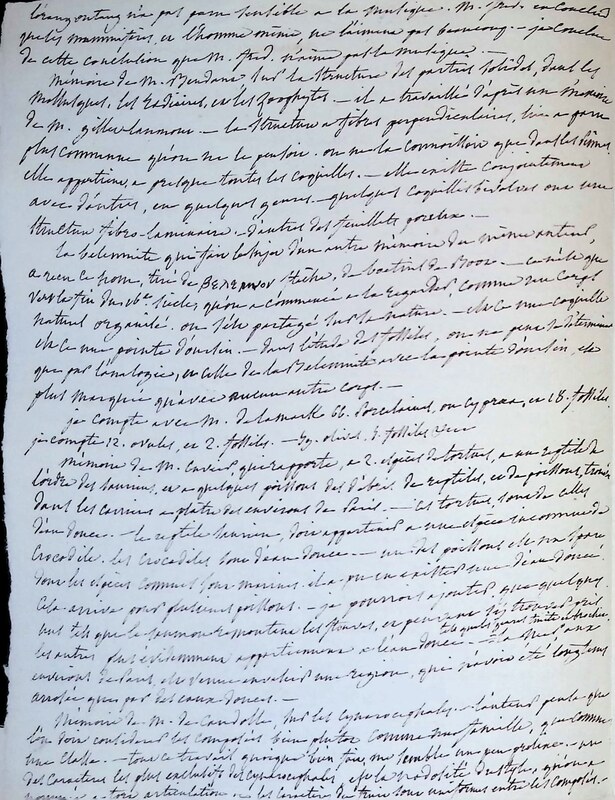 l'orang outang n'a pas paru sensible a la musique. M. fred. en conclud
que les mammifères, et l'homme même, ne l'aiment pas beaucoup. - je conclus
de cette conclusion que M. fred. n'aime pas la musique. -
Mémoire de M. Beudant sur la structure des parties solides, dans les
Mollusques, les Radiaires, et les Zoophytes. - il a travaillé d'après un mémoire
de M. gillet-laumont. - la structure a fibres perpendiculaires, lui a paru
plus commune qu'on ne le pensoit. on ne la connoissoit que dans les
elle appartient, a presque toutes les coquilles. - elle existe conjointement
avec d'autres, en quelques genres. - quelques coquilles bivalves ont une
structure fibro-laminaire. - d'autres des feuillets poreux. -
la belemnite qui fait le sujet d'un autre mémoire du même auteur,
a reçu ce nom, tiré de βελεμνον de Boot. - ce n'est que
vers la fin du siècle qu'on a commencé a la regarder comme un corps
naturel organisé. on s'est partagé sur sa nature. - est-ce une coquille
est-ce une pointe d'oursin. - dans l'étude des fossiles, on ne peut se déterminer
que par l'analogie, et celle de la Belemnite avec la pointe d'oursin, est
plus marquée qu'avec aucun autre corps. -
je compte avec M. de lamark 66. porcelaines, ou cypraea, et 18. fossiles
je compte 12. ovules, et 2. fossiles. - olives, 5. fossiles
Mémoire de M. Cuvier, qui rapporte, a 2. espèces de tortues, a un reptile de
l'ordre des sauriens, et a quelques poissons des débris de reptiles, et de poissons, trouvés
dans les carrières a platre des environs de Paris. - ces tortues sont de celles
d'eau douce. - le reptile saurien, doit appartenir a une espèce inconnue de
Crocodile. les crocodiles sont d'eau douce. - un des poissons est un spare
dont les espèces connues sont marines. il a pu en exister une d'eau douce
cela arrive pour plusieurs poissons. - je pourrois ajouter, que quelques
uns tels que le saumon remontent les fleuves, et peuvent s'y trouver
les autres plus évidemment appartiennent a l'eau douce. tels
environs de Paris, est venue envahir une région, qui n'avoit été longtems
arrosée que par des eaux douces. -
Mémoire de M. de Candolle, sur les cynarocephales. - l'auteur pense que
l'on doit considérer les composées bien plutot comme une famille, que comme
une classe. - tout ce travail quoique bien fait, me semble un peu prolixe. - un
des caractères les plus exclusifs des cynarocephales, est la nodosité du style, qu'on a
articulation. - les caractères de